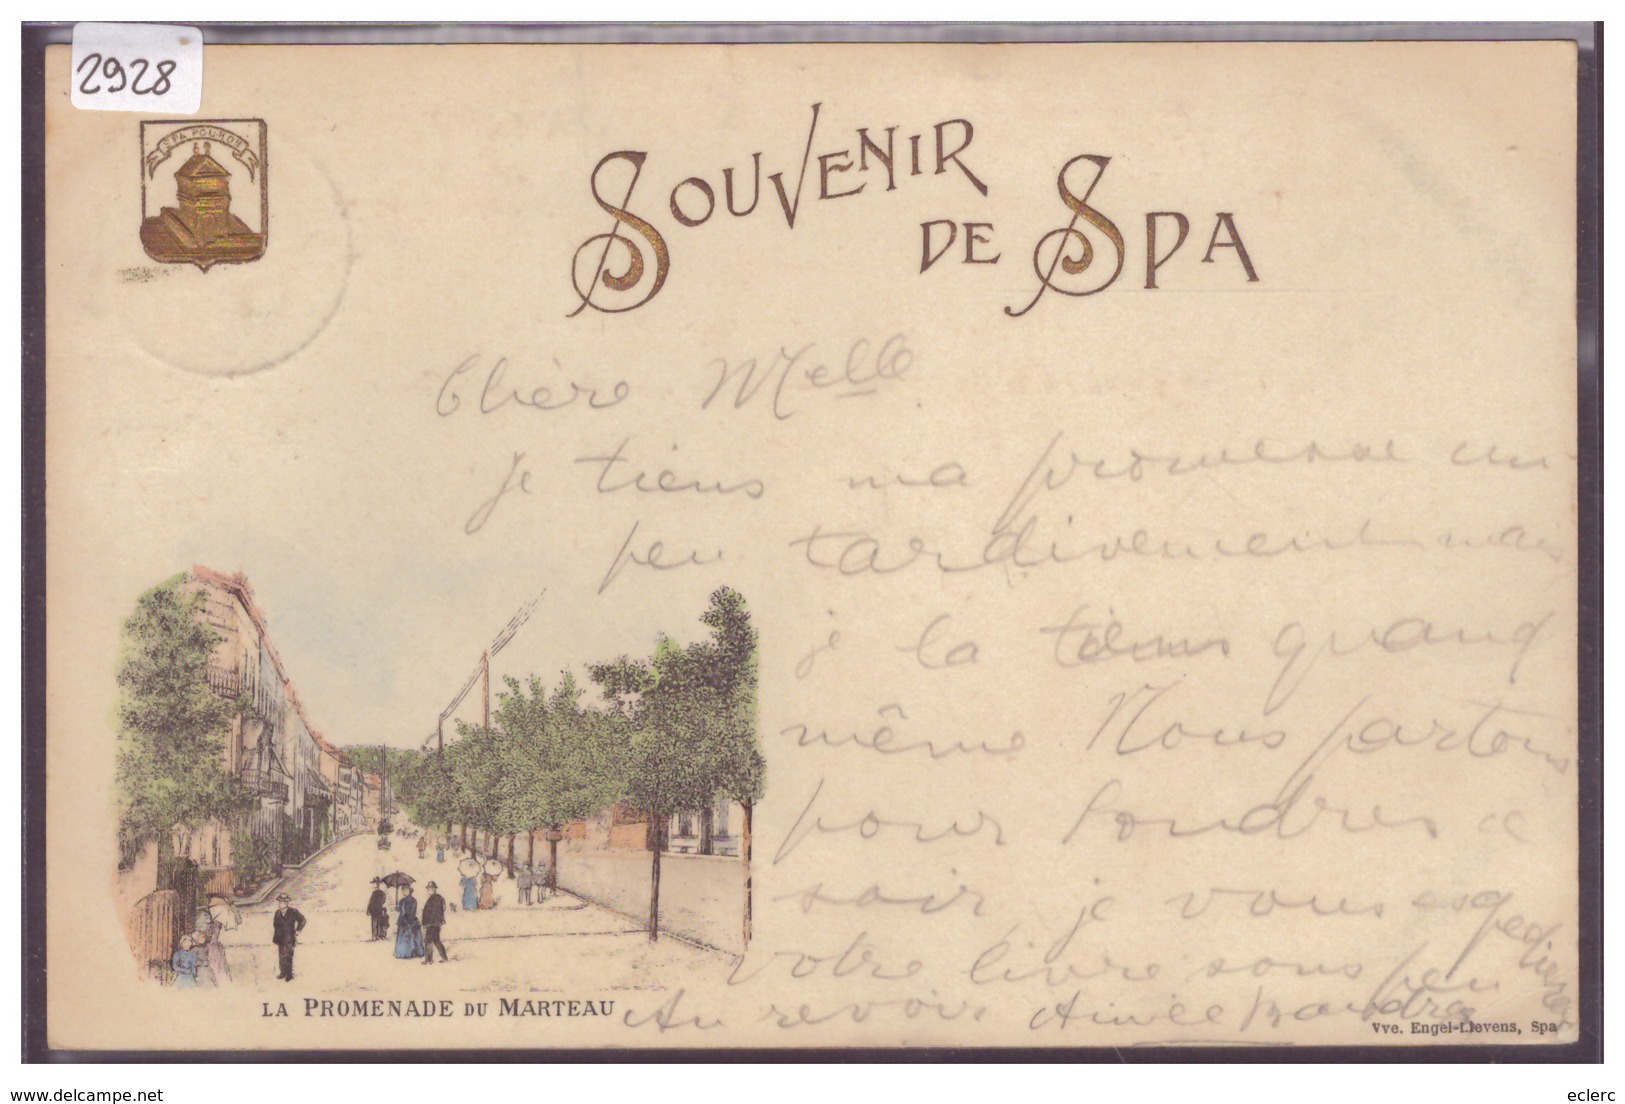 2928
SPA POUHON
SOUVENIR
DE SPA
Chère Melle
je tiens ma promesse un
peu tardivement mais
je la tiens quand
même Nous partons
pour Londres ce
soir, je vous expedierai
votre livre sous peu
Au revoir Aimée
LA PROMENADE DU MARTEAU
Vve. Engel-Lievens, Spa
delcampe.net
eclerc